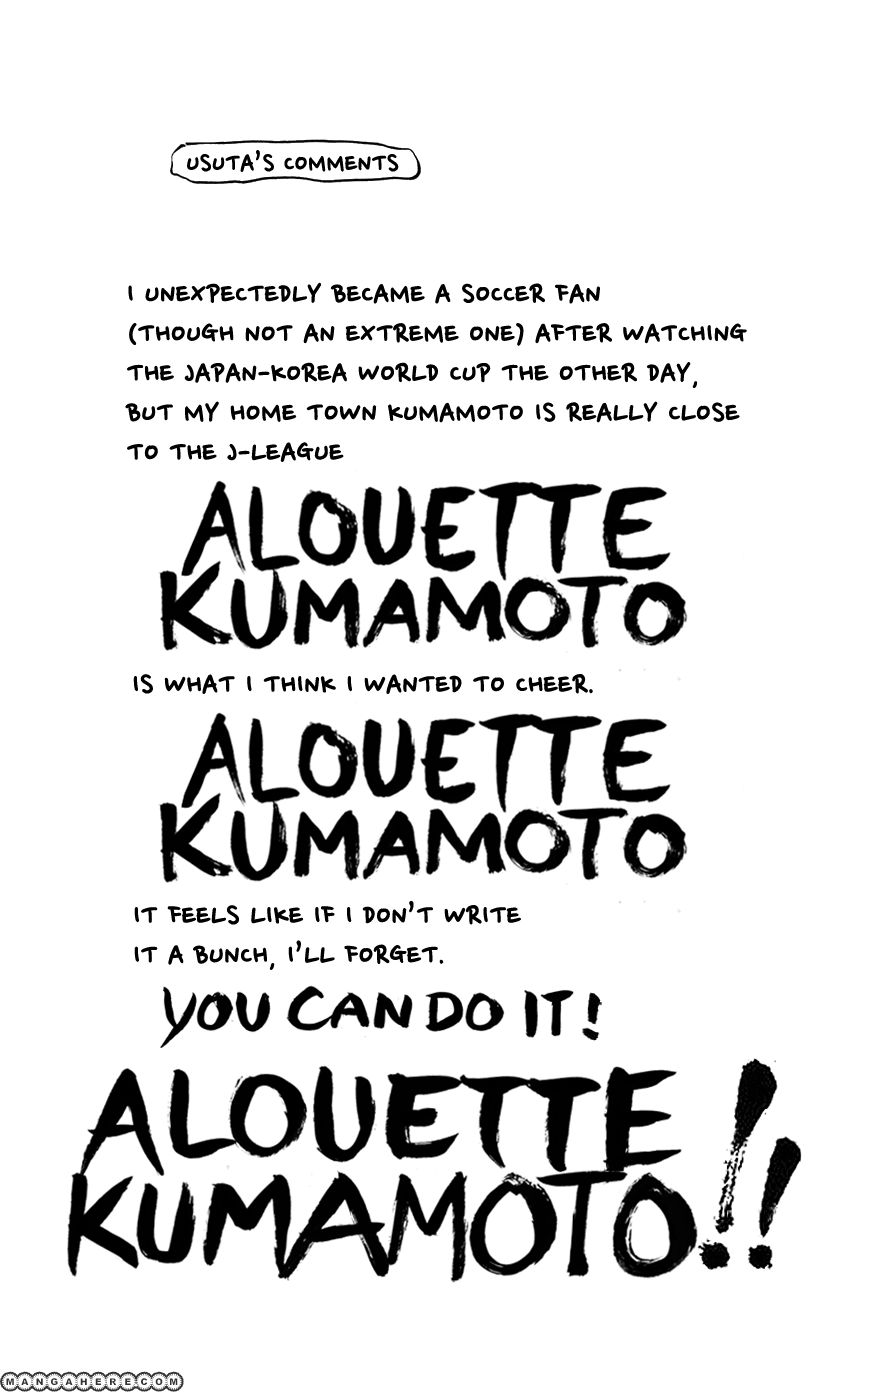 USUTA'S COMMENTS
I UNEXPECTEDLY BECAME A SOCCER FAN
(THOUGH NOT AN EXTREME ONE) AFTER WATCHING
THE JAPAN-KOREA WORLD CUP THE OTHER DAY,
BUT MY HOME TOWN KUMAMOTO IS REALLY CLOSE
TO THE J-LEAGUE
ALOUETTE
KUMAMOTO
IS WHAT I THINK I WANTED TO CHEER.
ALOUETTE
KUMAMOTO
IT FEELS LIKE IF I DON'T WRITE
IT A BUNCH, I'LL FORGET.
YOU CAN DO IT!
ALOUETTE
KUMAMOTO!!
MANGAHERE.COM